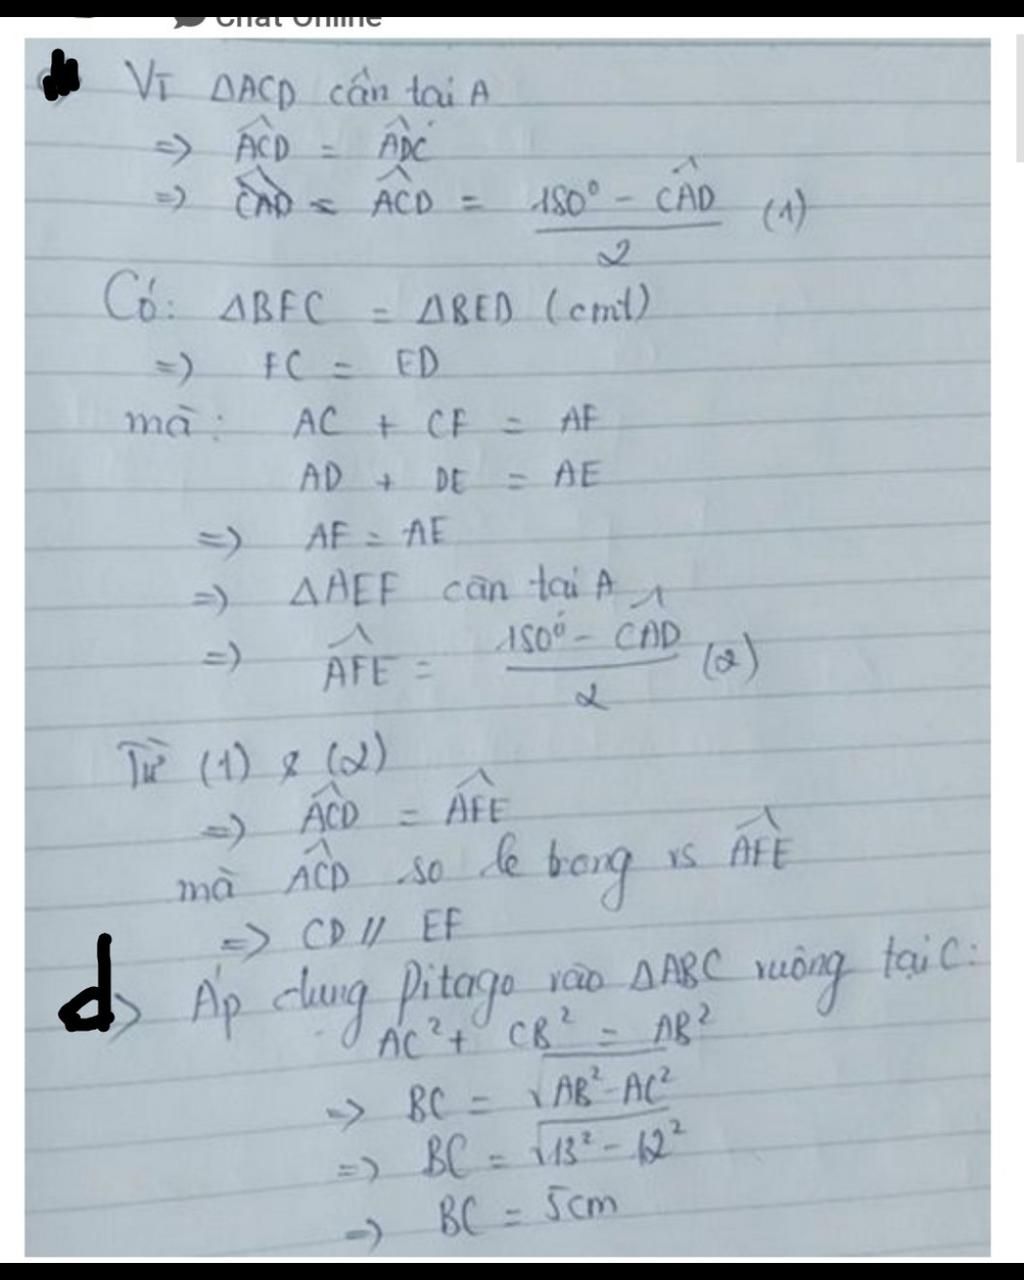 Chat Online
Vì ΔACD cân tại A
=> ACD̂ = ADĈ
=> CAD̂ = ACD̂ = (180° - CAD̂)/2 (1)
Có: ΔBFC = ΔBED (cmt)
=> FC = ED
mà: AC + CF = AF
AD + DE = AE
=> AF = AE
=> ΔAEF cân tại A
=> AFÊ = (180° - CAD̂)/2 (2)
Từ (1) & (2)
=> ACD̂ = AFÊ
mà ACD̂ so le trong vs AFÊ
=> CD // EF
d> Áp dụng Pitago vào ΔABC vuông tại C:
AC² + CB² = AB²
=> BC = √AB² - AC²
=> BC = √13² - 12²
=> BC = 5cm